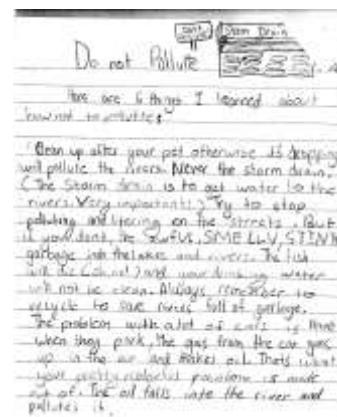 Storm Drain
Do not Pollute
Here are 6 things I learned about
how not to pollute:
Clean up after your pet otherwise it's dropping
will pollute the rivers. Never the storm drain.
(The Storm drain is to get water to the
rivers. Very important!) Try to stop
polluting and litering on the streets. Put
if you dont, the awful, SMELLY, STINKY
garbage into the lakes and rivers. The fish
will die (oh no!) and your drinking water
will not be clean. Always remember to
recycle to save rivers full of garbage.
The problem with a lot of cars is that
when they park, the gas from the car goes
up in the air and makes oil. Thats what
your pretty colored rainbow is made
out of. The oil falls into the river and
pollutes it.